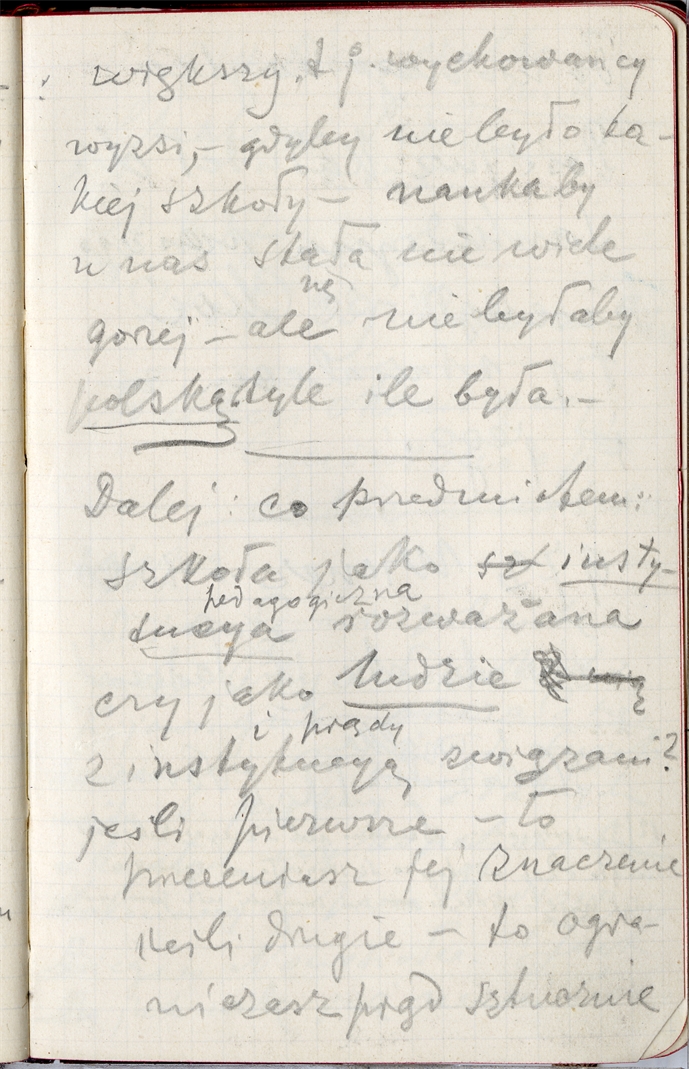 większy, t j. wychowańcy
wyżsi, – gdyby nie było ta-
kiej szkoły – nauka by
u nas stała nie wiele
gorzej – ale nie byłaby
polską tyle ile była. –
Dalej: co przedmiotem:
szkoła jako sz insty-
pedagogiczna
tucya rozważana
czy jako ludzie
i prądy
z instytucyą związani?
jeśli pierwsze – to
przeceniasz jej znaczenie
jeśli drugie – to ogra-
niczasz prąd sztucznie